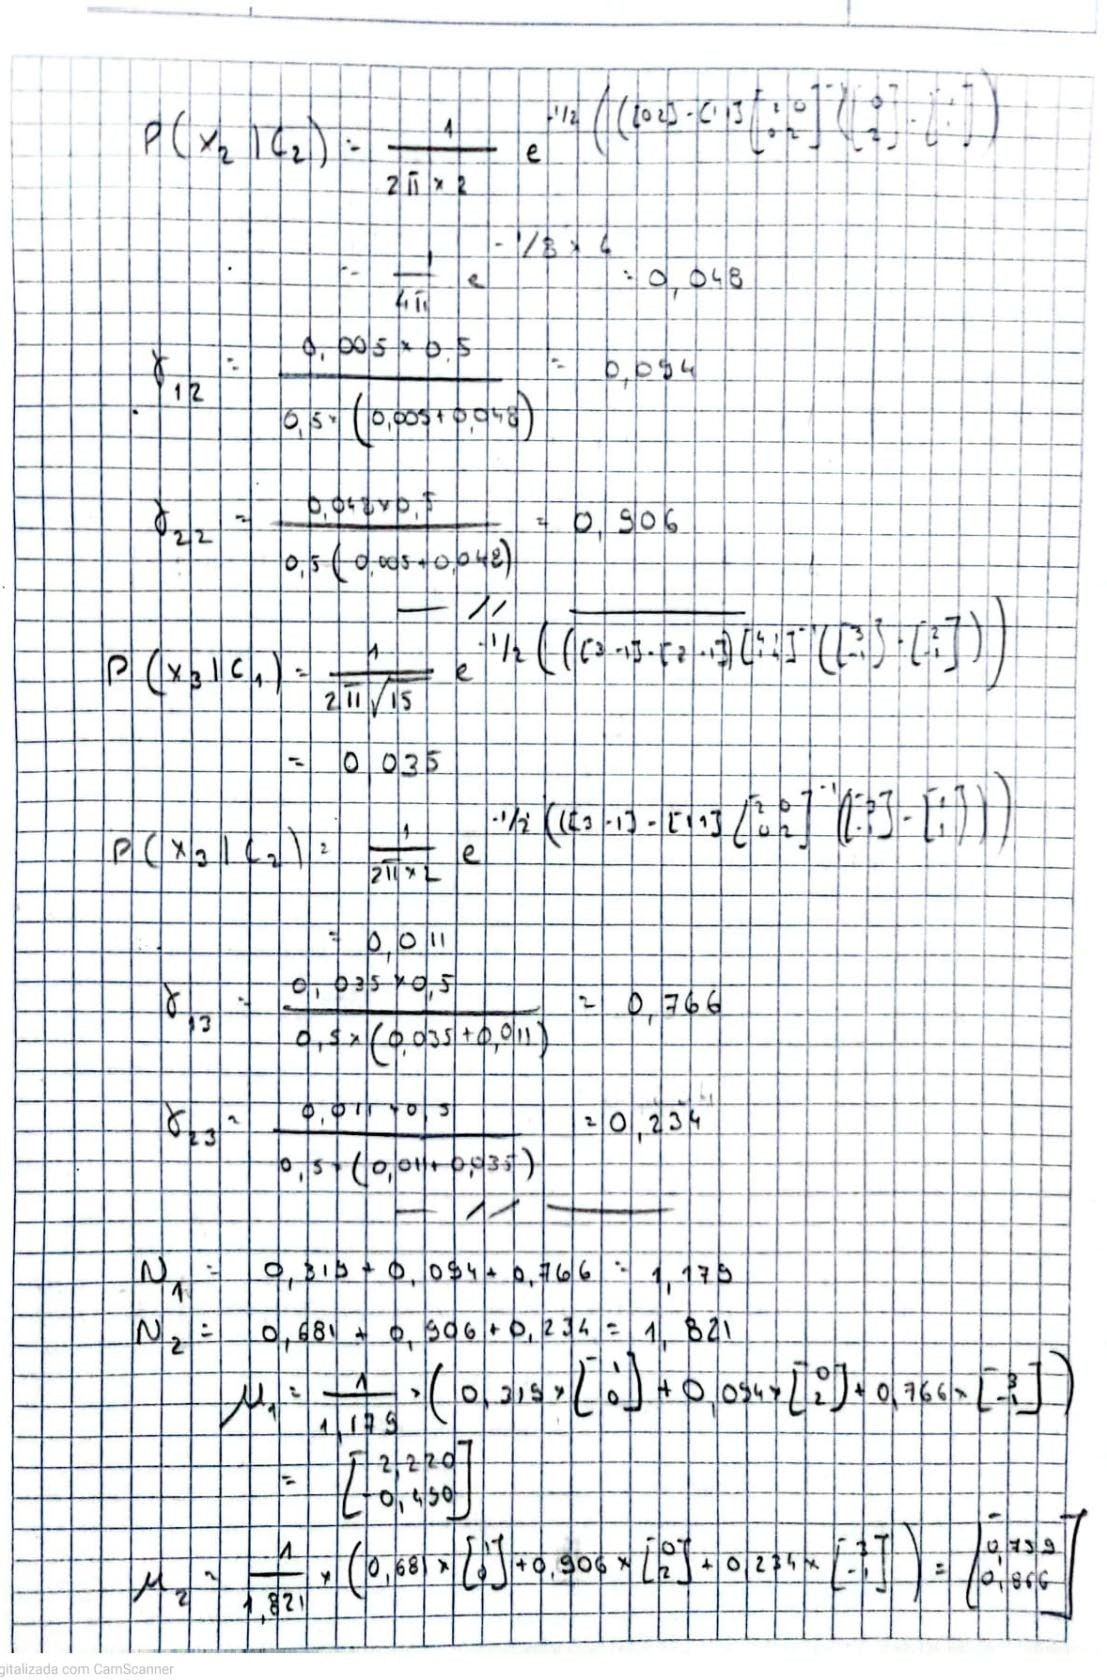 P(x₂|C₂) = 1/(2π×2) e^(-1/2(([0 2]-[1 1][2 0; 0 2]⁻¹([0; 2]-[1; 1])))
= 1/(4π) e^(-1/8×4) = 0,048
γ₁₂ = (0,005×0,5)/(0,5×(0,005+0,048)) = 0,094
γ₂₂ = (0,048×0,5)/(0,5(0,005+0,048)) = 0,906
— //
P(x₃|C₁) = 1/(2π√15) e^(-1/2((([3 -1]-[2 -1])[4 1; 1 4]⁻¹([3; -1]-[2; -1])))
= 0,035
P(x₃|C₂) = 1/(2π×2) e^(-1/2(([3 -1]-[1 1][2 0; 0 2]⁻¹([3; -1]-[1; 1])))
= 0,011
γ₁₃ = (0,035×0,5)/(0,5×(0,035+0,011)) = 0,766
γ₂₃ = (0,011×0,5)/(0,5×(0,011+0,035)) = 0,234
— // —
N₁ = 0,319 + 0,094 + 0,766 = 1,179
N₂ = 0,681 + 0,906 + 0,234 = 1,821
μ₁ = 1/1,179 × (0,319×[1; 0] + 0,094×[0; 2] + 0,766×[3; -1])
= [2,220; -0,490]
μ₂ = 1/1,821 × (0,681×[1; 0] + 0,906×[0; 2] + 0,234×[3; -1]) = [0,759; 0,866]
gitalizada com CamScanner